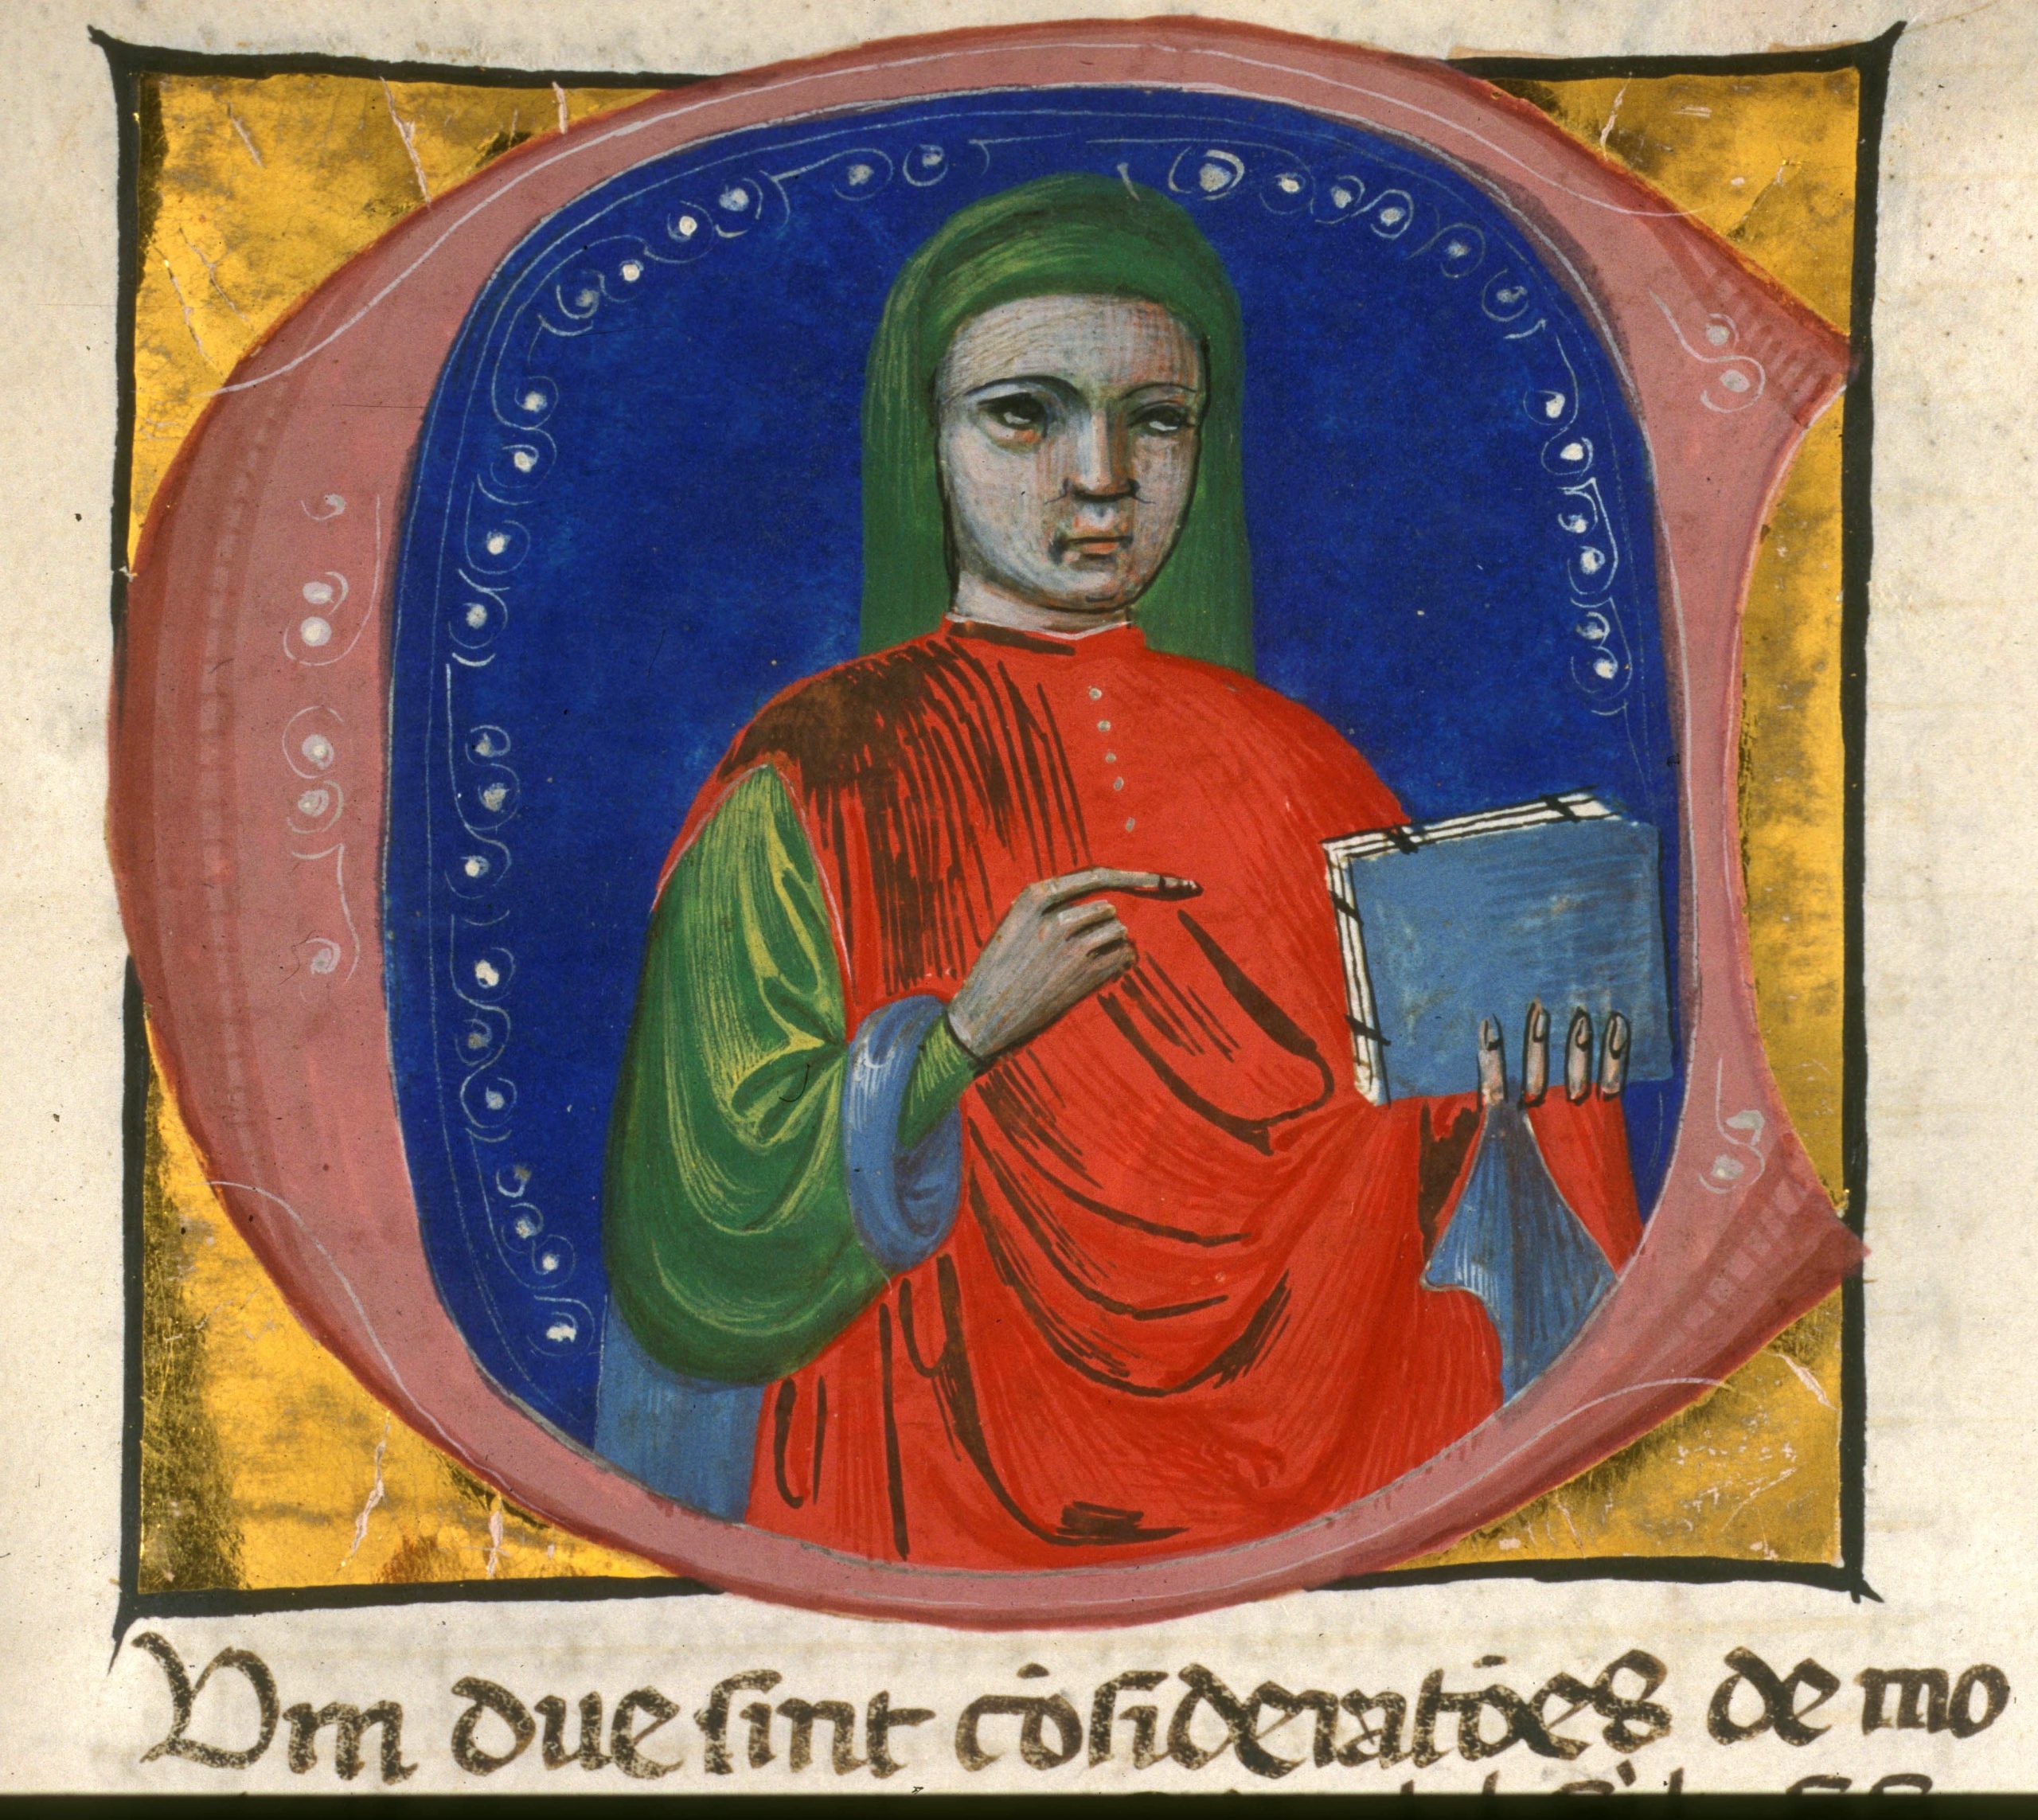 Cum due sint c̄osideratōes de mo